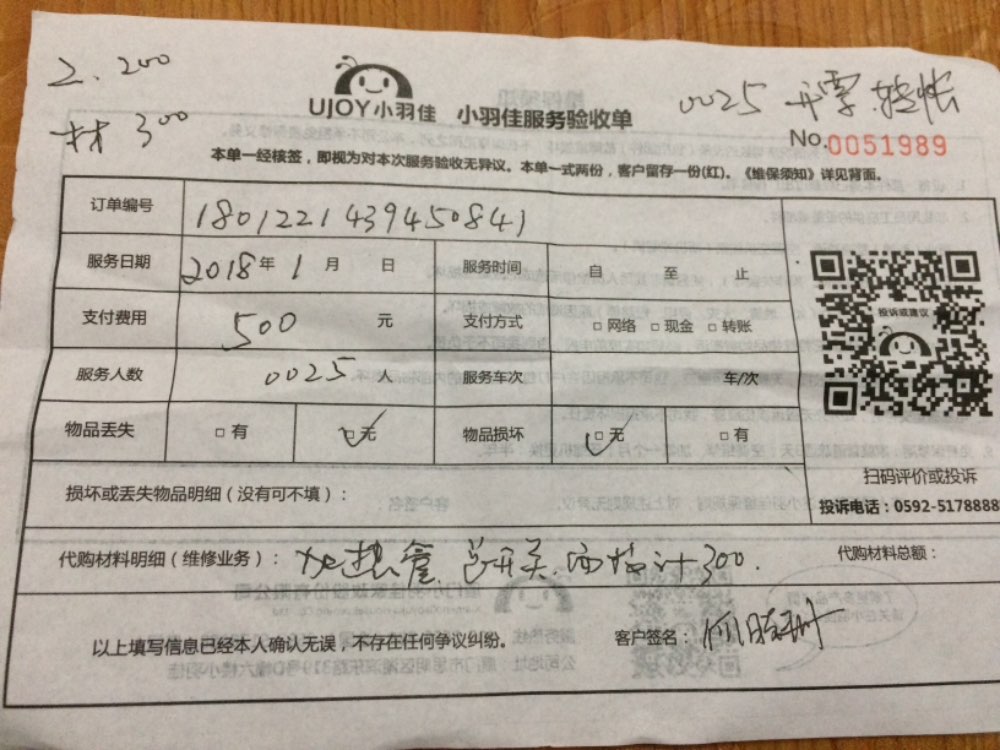 工.200
材 300
UJOY小羽佳 小羽佳服务验收单
0025 开票 转帐
No.0051989
本单一经核签，即视为对本次服务验收无异议。本单一式两份，客户留存一份(红)。《维保须知》详见背面。
订单编号 1801221439450841
服务日期 2018年 1月 日 服务时间 自 至 止
支付费用 500 元 支付方式 □网络 □现金 □转账
服务人数 0025 人 服务车次 车/次
投诉或建议
物品丢失 □有 □无 物品损坏 □无 □有
扫码评价或投诉
损坏或丢失物品明细（没有可不填）：
投诉电话：0592-5178888
代购材料明细（维修业务）： 加热管 总开关 计300.
代购材料总额：
以上填写信息已经本人确认无误，不存在任何争议纠纷。 客户签名：